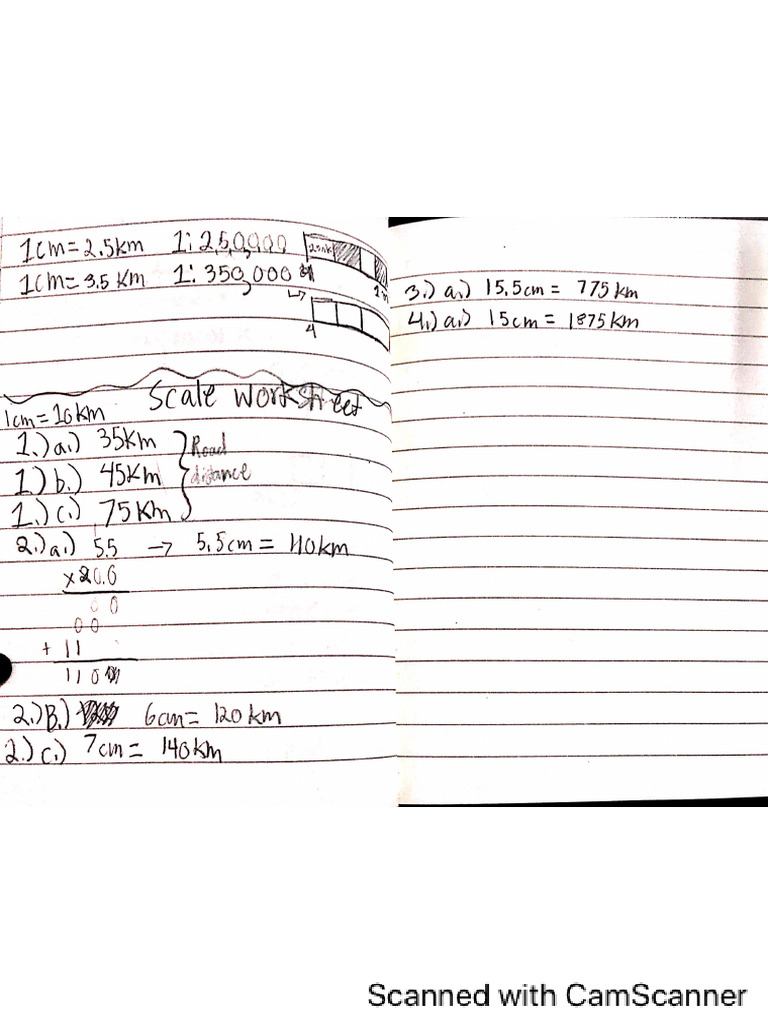 1cm = 2.5km 1:250,000
1cm = 3.5 km 1:350,000
4
Scale worksheet
1cm = 10km
1.) a.) 35km
1.) b.) 45km
1.) c.) 75km
Road
distance
2.) a.) 5.5 → 5.5cm = 110km
x20.0
00
00
+ 11
110
2.) B.) 6cm = 120km
2.) c.) 7cm = 140km
3.) a.) 15.5cm = 775 km
4.) a.) 15cm = 1875 km
Scanned with CamScanner